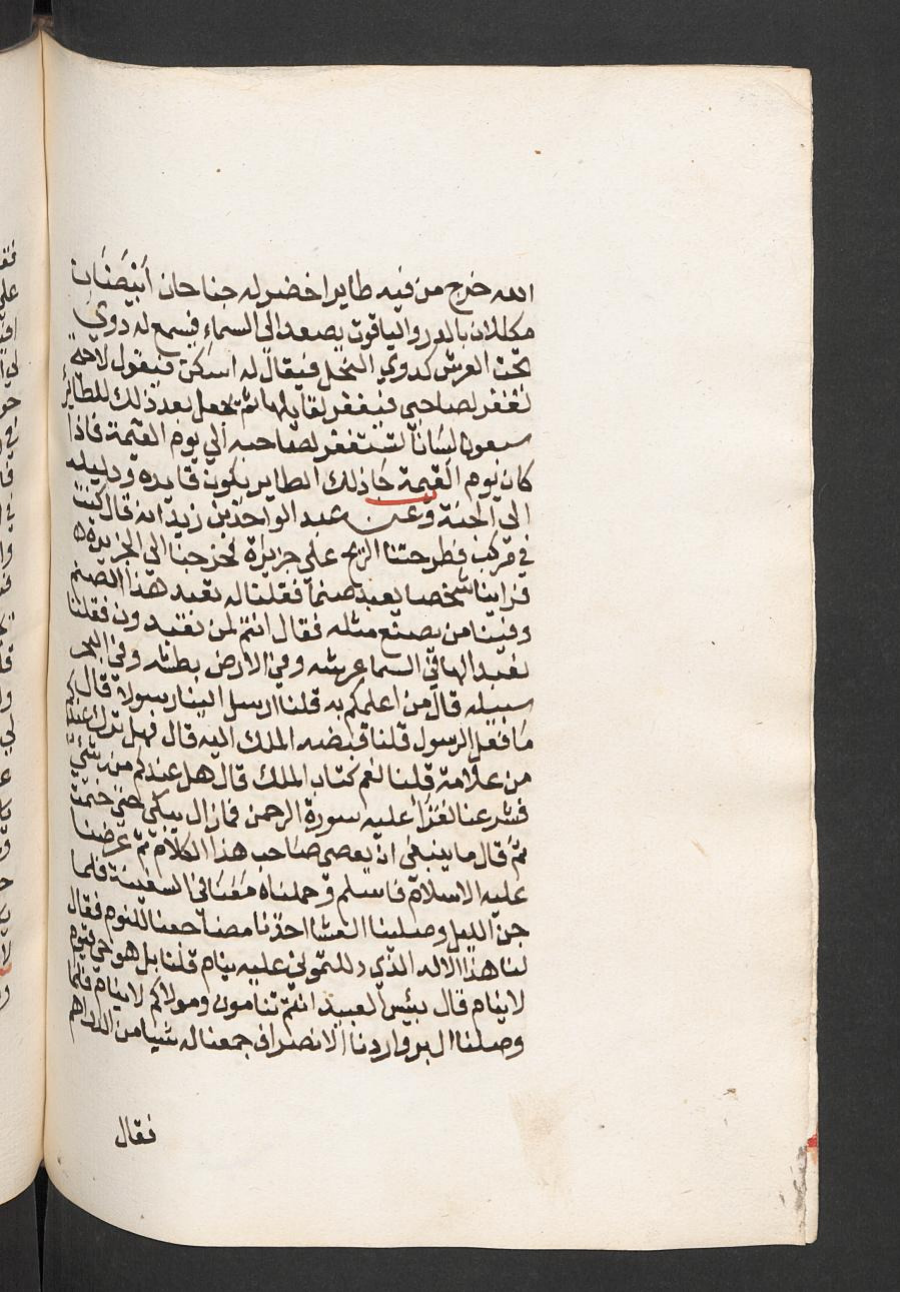 الله خرج من فيه طايرا خضر له جناحان أبيَضَان
مكللان بالدر والياقوت يصعد الى السماءِ فيسمع له دوي
تحت العرش كدوي النحل فيقال له اسكن فيقول لا حتى
تغفر لصاحبي فيغفر لقايلها ثم يجعل بعد ذلك للطاير
سبعون لسَاناً تستغفر لصاحبه الي يوم القيمة فاذا
كان يوم القيمة جا ذلك الطاير يكون قايده ودليله
الى الجنة وعن عبد الواحد بن زيد انه قال كنت
في مركب فطرحتنا الريح علي جزيرة فخرجنا الي الجزيرة
فراينا شخصا يعبد صنما فقلنا له تعبد هذا الصنم
وفينا من يصنع مثله فقال انتم لمن تعبدون فقلنا
نعبد الها في السما عرشه وفي الارض بطشه وفي البحر
سبيله قال من اعلمكم به قلنا ارسل الينا رسولا قال
مَا فعل الرسول قلنا قبضه الملك اليه قال فهل ترك عندكم
من علامة قلنا نعم كتاب الملك قال هل عندكم منه شئ
فشرعنا نقرَأ عليه سورة الرحمن فما زال يبكي حتى ختمت
ثم قال ما ينبغي ان يعصى صاحب هذا الكلام ثم عرضنا
عليه الاسلام فاسلم وحملناه مَعَنا في السفينة فلما
جن الليل وصلينا العشا اخذنا مضاجعنا للنوم فقال
لنا هذا الاله الذي دللتموني عليه ينام قلنا بل هو حي قيوم
لا ينام قال بيئس العبيد انتم تنامون ومولاكم لا ينام فلما
وصلنا البر واردنا الانصراف جمعنا له شيا من الدراهم
فقال